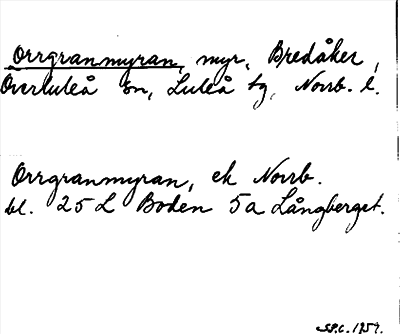 Orrgranmyran, myr, Bredåker,
Överluleå sn, Luleå tg, Norrb. l.
Orrgranmyran, ek Norrb.
bl. 25 L Boden 5a Långberget.
1959.